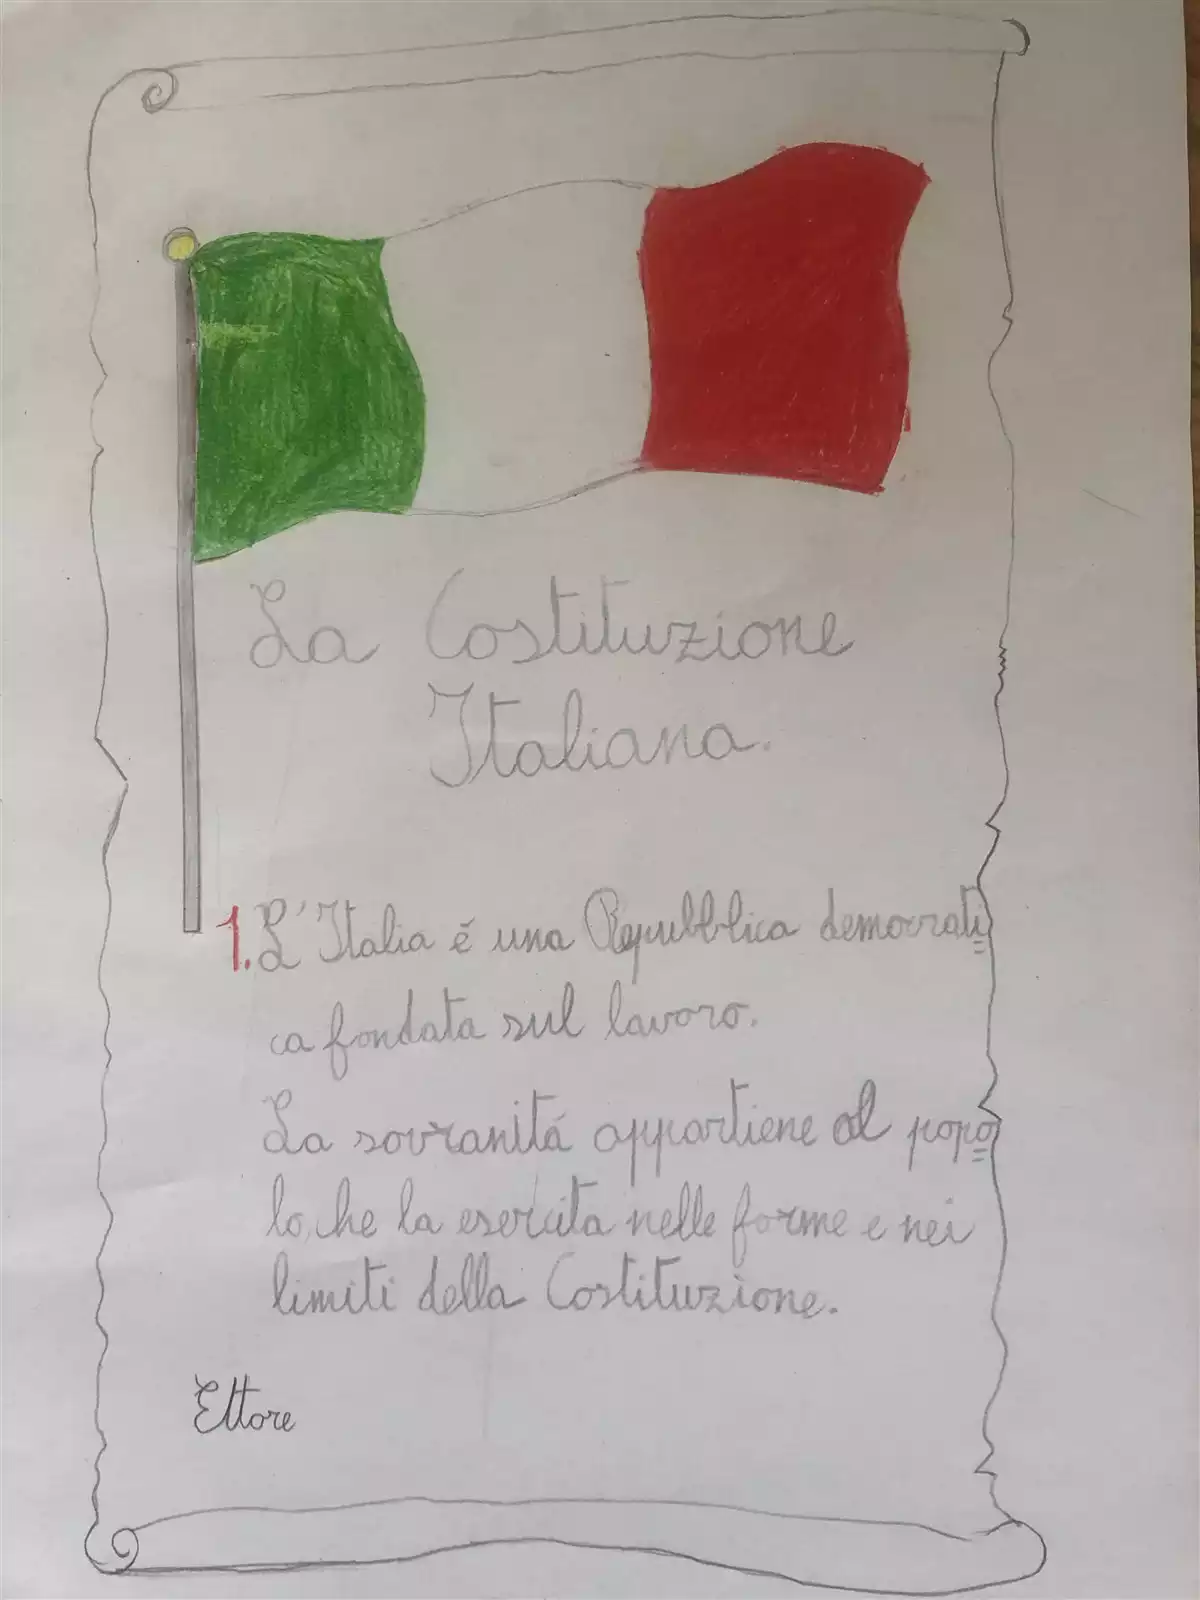 La Costituzione
Italiana.
1. L'Italia é una Repubblica democrati
ca fondata sul lavoro.
La sovranitá appartiene al popo
lo, che la esercita nelle forme e nei
limiti della Costituzione.
Ettore